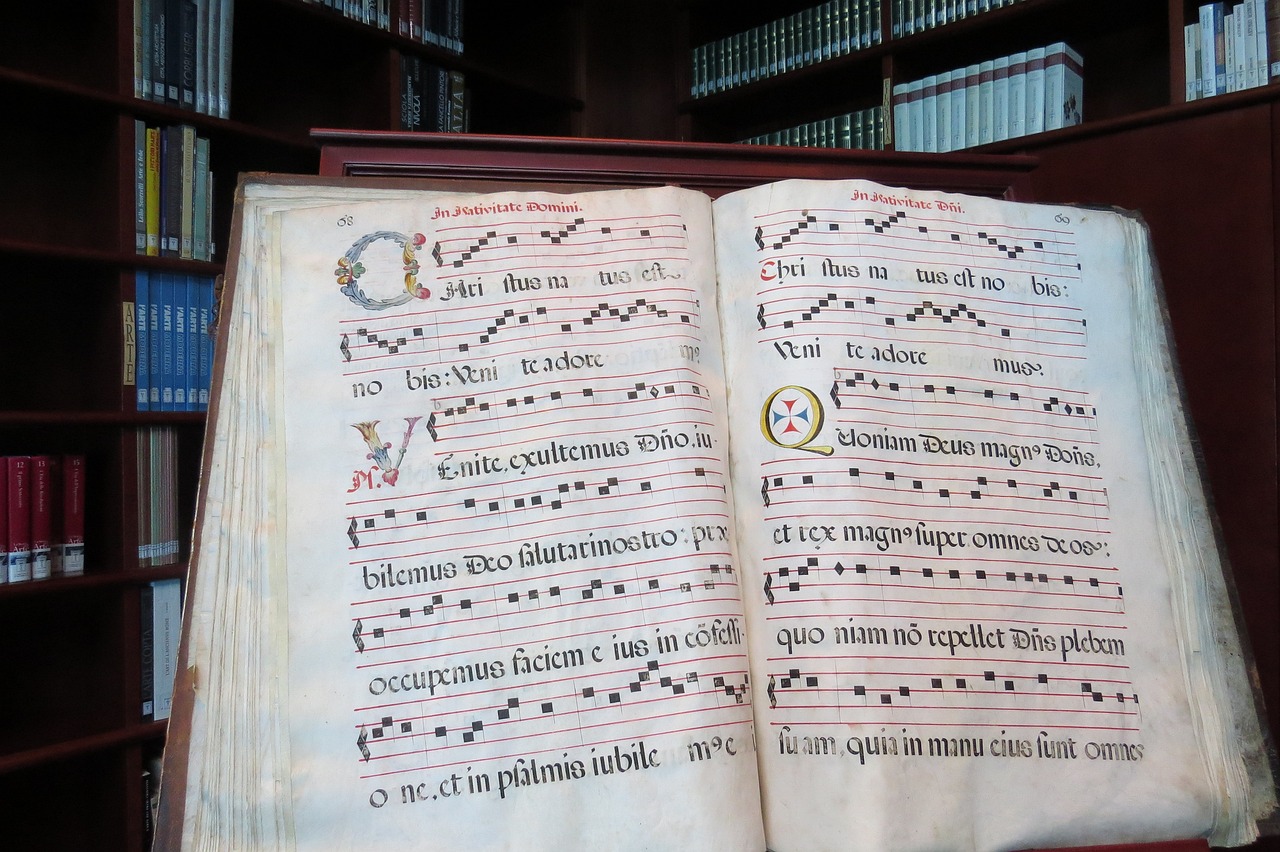 68
In Nativitate Domini.
CHri stus na tus est
no bis: Veni te adore m9
Ps. VEnite, exultemus Dño, iu-
bilemus Deo salutari nostro: præ
occupemus faciem e ius in cõfessi-
o ne, et in psalmis iubile m9 e
69
In Nativitate Dñi.
Chri stus na tus est no bis:
Veni te adore mus.
Quoniam Deus magn9 Doñs,
et rex magn9 super omnes deos:
quo niam nõ repellet Dñs plebem
suam, quia in manu eius sunt omnes
ARTE
L'ARTE
L'ARTE
L'ARTE
L'ARTE
L'ARTE
12
13